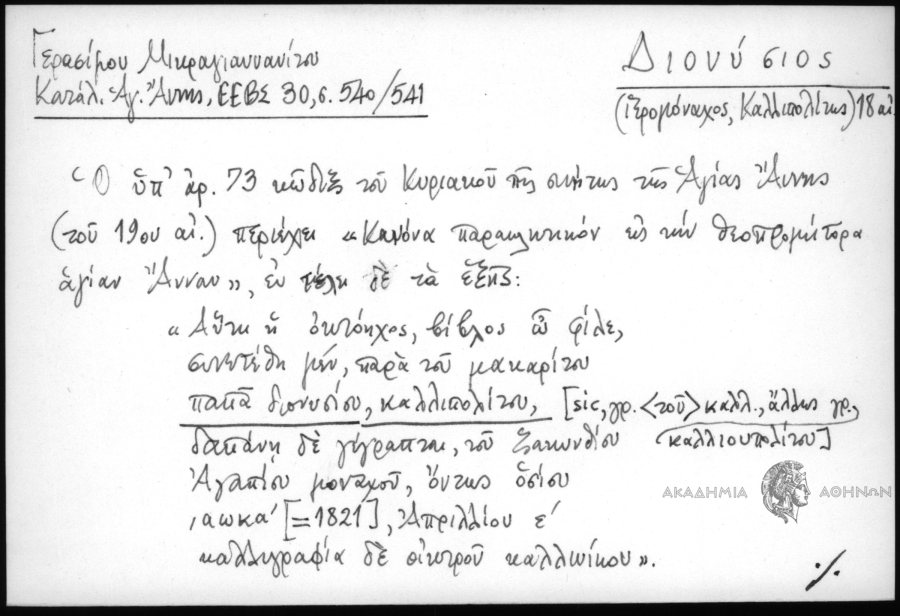 Γερασίμου Μικραγιαννανίτου
Κατάλ. Ἁγ. Ἄννης, ΕΕΒΣ 30, σ. 540/541
Διονύσιος
(ἱερομόναχος, Καλλιπολίτης) 18 αἰ.
Ὁ ὑπ' ἀρ. 73 κῶδιξ τοῦ Κυριακοῦ τῆς σκήτης τῆς Ἁγίας Ἄννης
(τοῦ 19ου αἰ.) περιέχει «Κανόνα παρακλητικόν εἰς τὴν θεοπρομήτορα
ἁγίαν Ἄνναν», ἐν τέλει δὲ τὰ ἑξῆς:
«Αὕτη ἡ ὀκτόηχος, βίβλος ὦ φίλε,
συνετέθη μέν, παρὰ τοῦ μακαρίτου
παπᾶ διονυσίου, καλλιπολίτου, [sic, γρ. <τοῦ> καλλ., ἄλλως γρ.
καλλιουπολίτου]
δαπάνῃ δὲ γέγραπται, τοῦ Ζακυνθίου
Ἀγαπίου μοναχοῦ, ὄντως ὁσίου
͵αωκα' [=1821], Ἀπριλλίου ε'
καλλιγραφία δὲ οἰκτροῦ καλλινίκου».
ΑΚΑΔΗΜΙΑ ΑΘΗΝΩΝ
./.